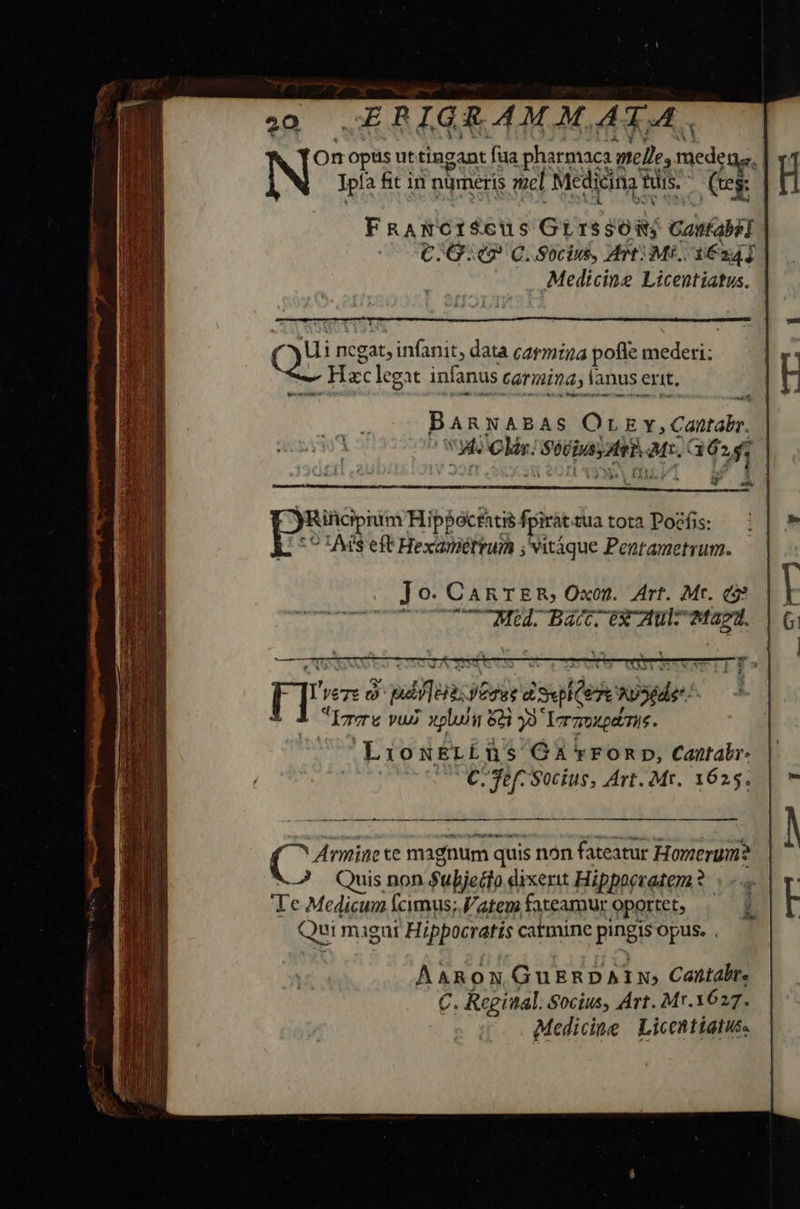 20 EPIGRAMMATA.
Non opus ut tingant sua pharmaca melle, medentes:
Ipsa fit in numeris mel Medicina tuis. (tes:
FRANCISCUS GLISSON, Cantabri
C. G. & C. Socius, Art. Mr. 1624
Medicinæ Licentiatus.
Qui negat, insanit, data carmina posse mederi:
Hæc legat insanus carmina, sanus erit.
BARNABAS OLEY, Cantabr.
Aul. Clar. Socius, Art. Mr. 1625
PRincipium Hippocratis spirat tua tota Poësis:
Ars est Hexametrum, vitáque Pentametrum.
Jo. CARTER, Oxon. Art. Mr. &
Med. Bacc. ex Aul. Magd.
LIONELLUS GAYFORD, Cantabr.
C. Jes. Socius, Art. Mr. 1625.
CArmine te magnum quis non fateatur Homerum?
Quis non Subjecto dixerit Hippocratem?
Te Medicum scimus; Vatem fateamur oportet,
Qui magni Hippocratis carmine pingis opus.
AARON GUERDAIN, Cantabr.
C. Reginal. Socius, Art. Mr. 1627.
Medicinæ Licentiatus.